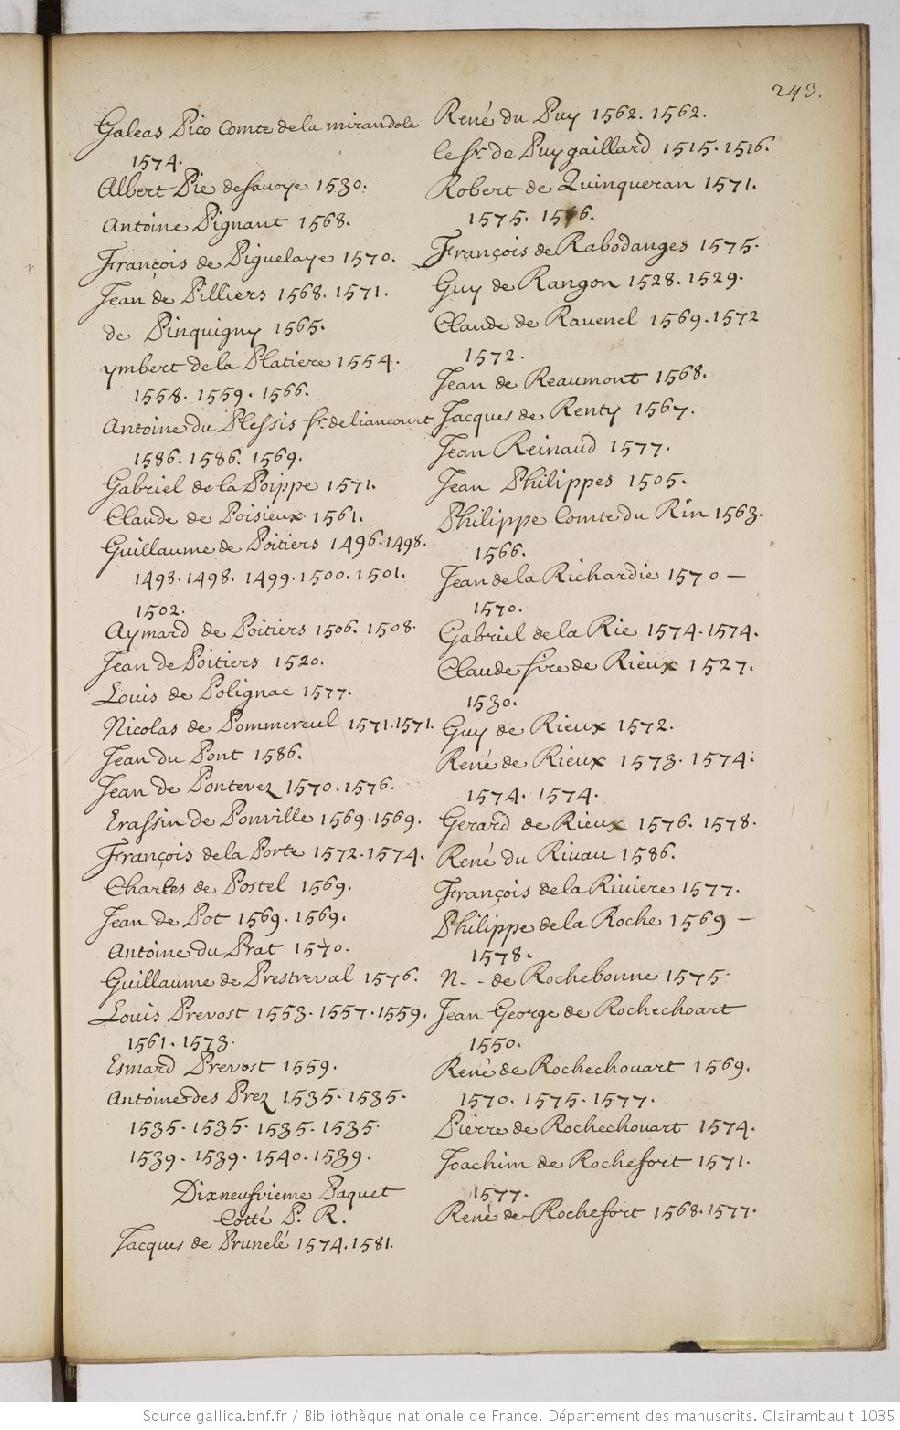 243.
Galeas Pico Comte de la mirandole
1574.
Albert Pie de savoye 1530.
Antoine Pignant 1568.
François de Piguelaye 1570.
Jean de Pilliers 1568. 1571.
de Pinquigny 1565.
ymbert de la Platiere 1554.
1558. 1559. 1566.
Antoine du Plessis sr. de liancourt
1586. 1586. 1569.
Gabriel de la Poippe 1571.
Claude de Poisieux 1561.
Guillaume de Poitiers 1496. 1498.
1498. 1498. 1499. 1500. 1501.
1502.
Aymard de Poitiers 1506. 1508.
Jean de Poitiers 1520.
Louis de Polignac 1577.
Nicolas de Pommereul 1571. 1571.
Jean du Pont 1586.
Jean de Pontevez 1570. 1576.
Erassin de Ponville 1569. 1569.
François de la Porte 1572. 1574.
Charles de Postel 1569.
Jean de Pot 1569. 1569.
Antoine du Prat 1570.
Guillaume de Prestreval 1576.
Louis Prevost 1553. 1557. 1559.
1561. 1573.
Esmard Prevost 1559.
Antoine des Prez 1535. 1535.
1535. 1535. 1535. 1535.
1539. 1539. 1540. 1539.
Dixneufvieme Paquet
Cotté P. R.
Jacques de Prunelé 1574. 1581.
René du Puy 1562. 1562.
le sr. de Puygaillard 1515. 1516.
Robert de Quinqueran 1571.
1575. 1576.
François de Rabodanges 1575.
Guy de Rangon 1528. 1529.
Claude de Ravenel 1569. 1572
1572.
Jean de Reaumont 1568.
Jacques de Renty 1567.
Jean Reinaud 1577.
Jean Philippes 1505.
Philippe Comte du Rin 1563.
1566.
Jean de la Richardie 1570 —
1570.
Gabriel de la Rie 1574. 1574.
Claude sire de Rieux 1527.
1530.
Guy de Rieux 1572.
René de Rieux 1573. 1574.
1574. 1574.
Gerard de Rieux 1576. 1578.
René du Rivau 1586.
François de la Riviere 1577.
Philippe de la Roche 1569 —
1578.
N. - - de Rochebonne 1575.
Jean George de Rochechoart
1550.
René de Rochechouart 1569.
1570. 1575. 1577.
Pierre de Rochechouart 1574.
Joachim de Rochefort 1571.
1577.
René de Rochefort 1568. 1577.
Source gallica.bnf.fr / Bibliothèque nationale de France. Département des manuscrits. Clairambault 1035